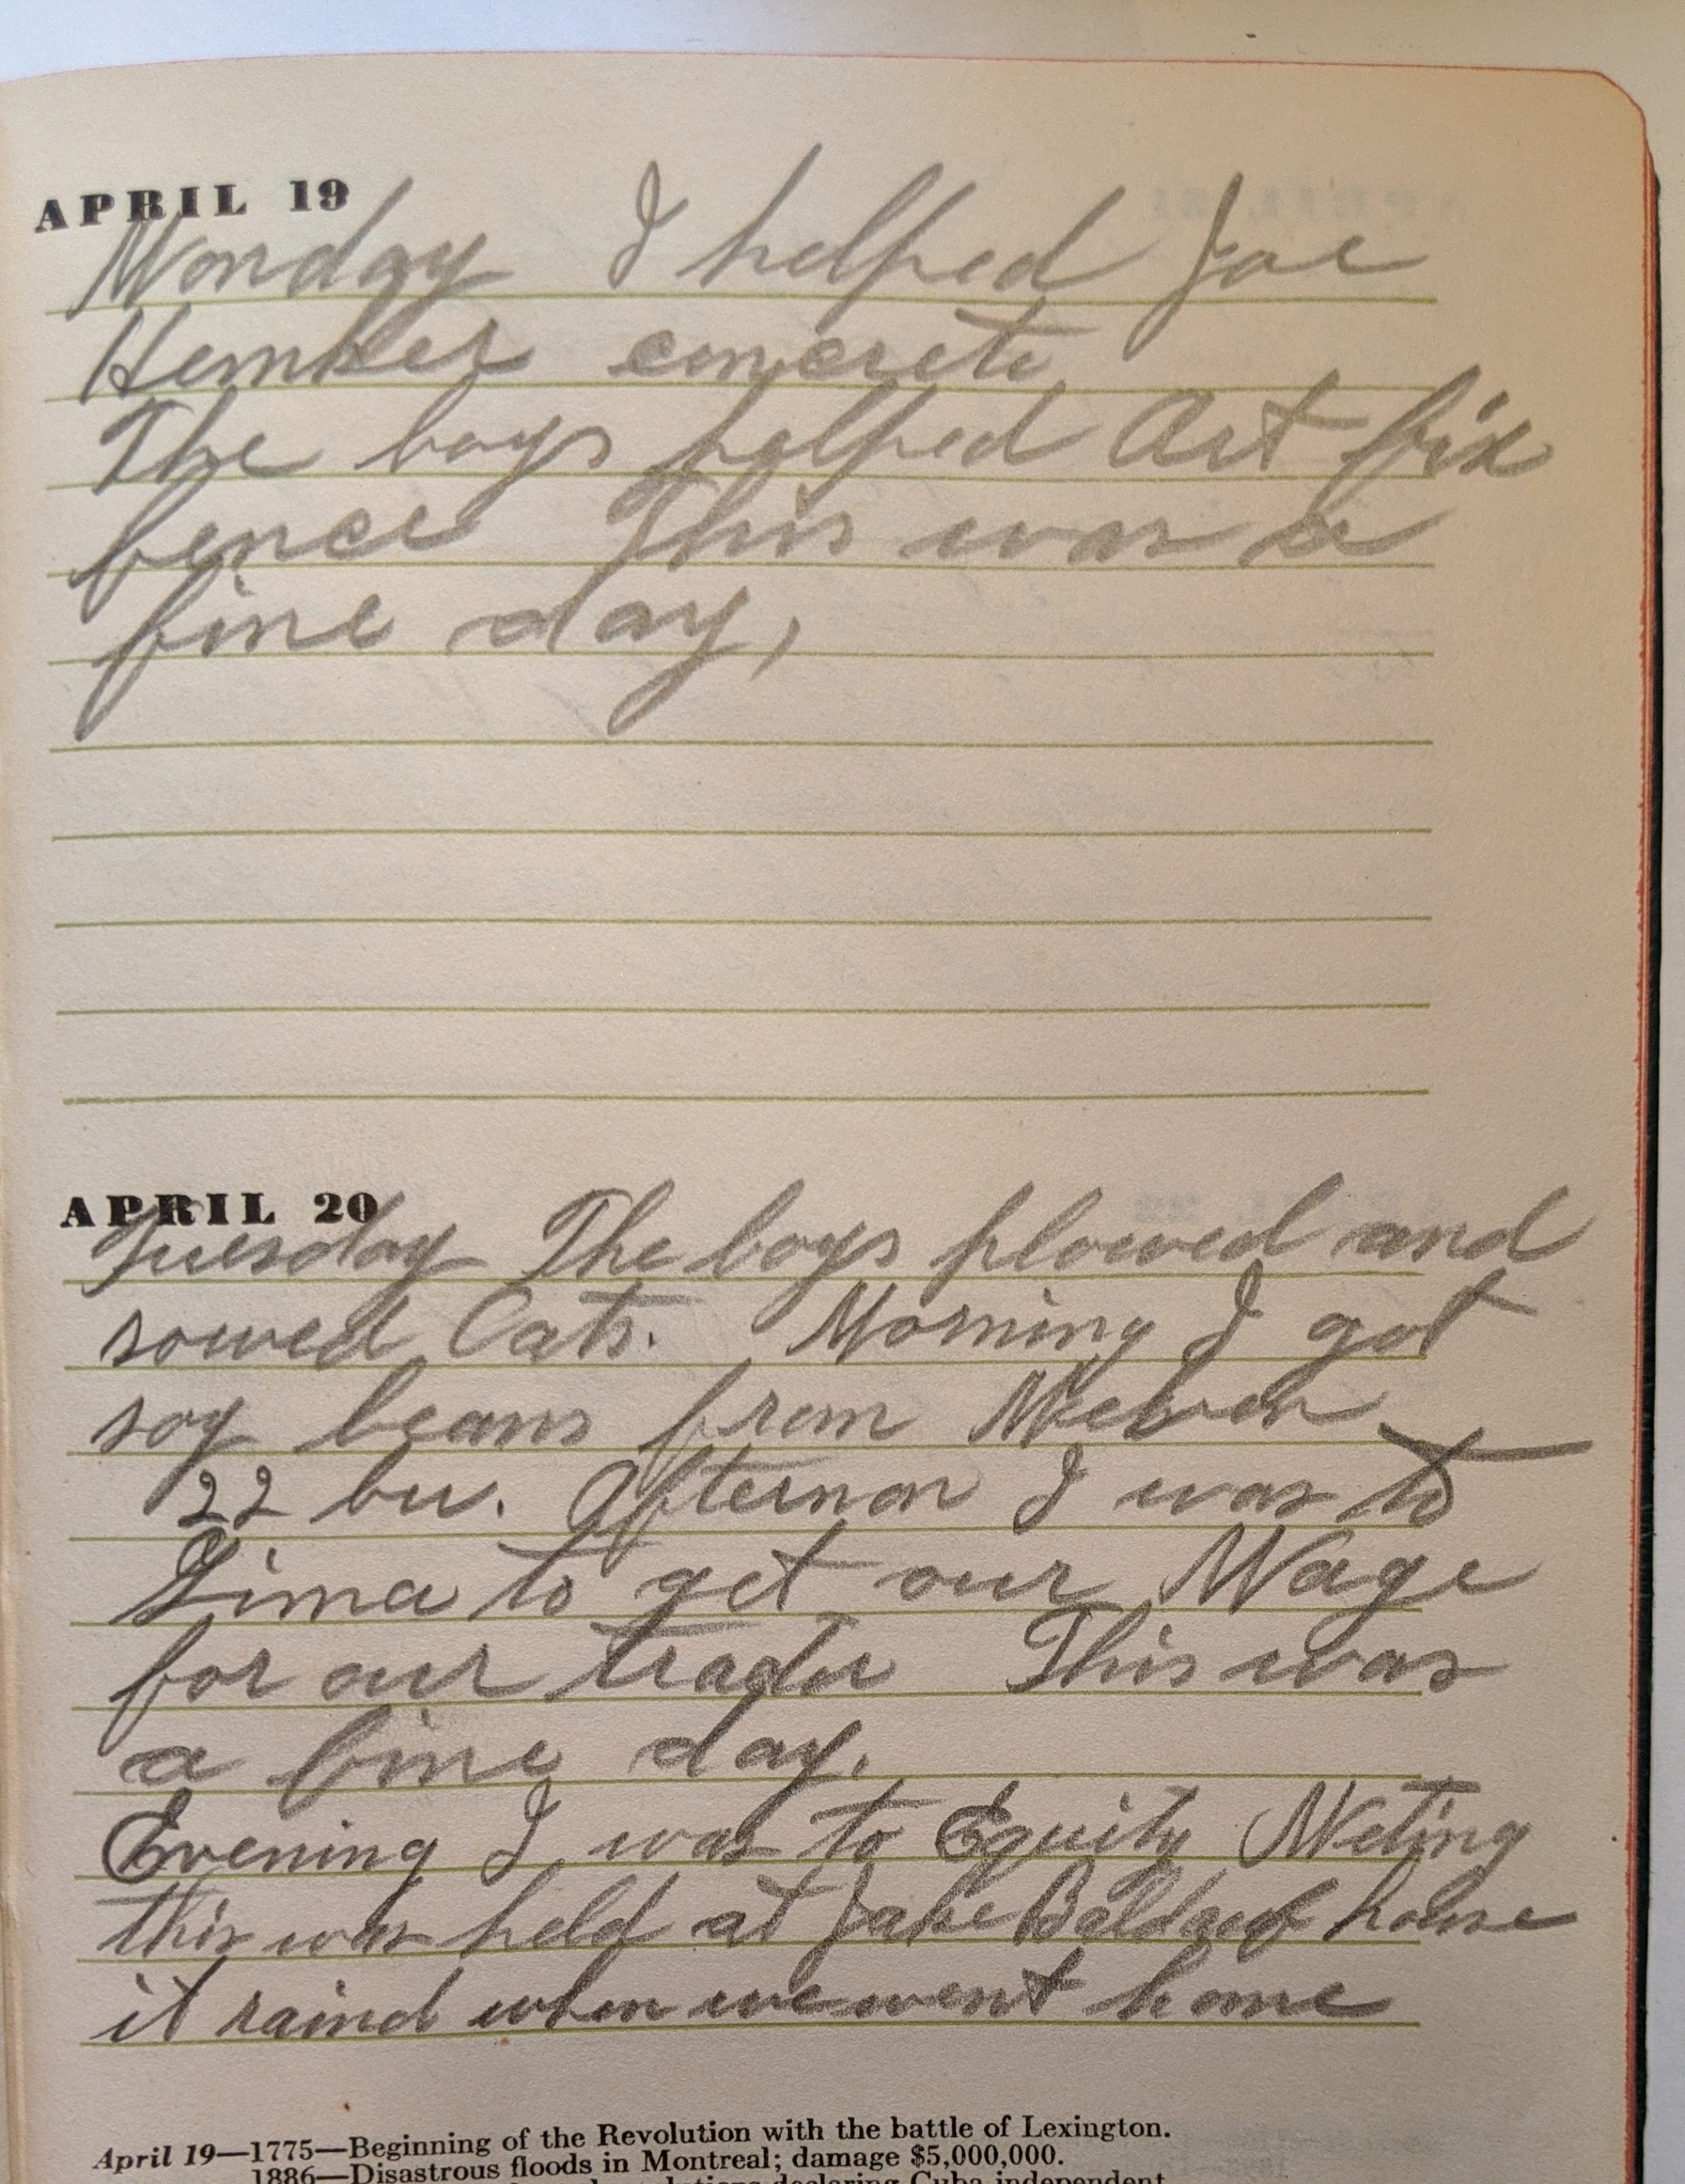 APRIL 19
Monday I helped Joe
Hemker concrete
The boys helped Art fix
fence This was a
fine day,
APRIL 20
Tuesday The boys plowed and
sowed Oats. Morning I got
soy beans from
22 bu. Afternon I was to
Lima to get our Wage
for our This was
a fine day.
Evening I was to Equity Meting
this was held at Jake Baldauf house
it raind when we went home
April 19—1775—Beginning of the Revolution with the battle of Lexington.
1886—Disastrous floods in Montreal; damage $5,000,000.